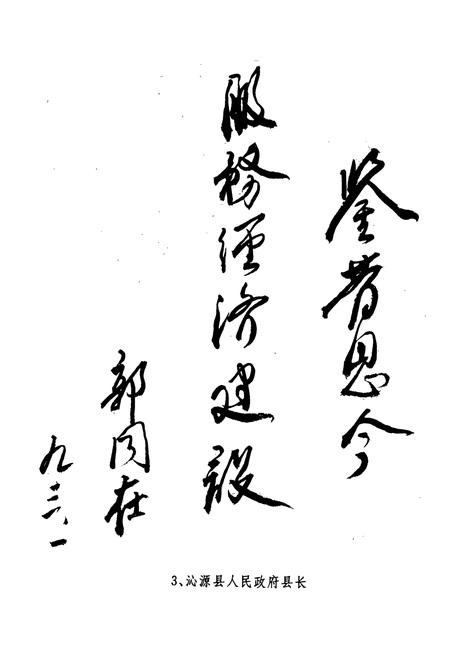 鉴昔思今
服務经济建设
郭同在
九三.一
3、沁源县人民政府县长